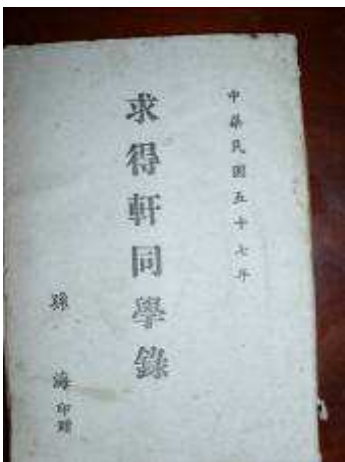 中華民國五十七年
求得軒同學錄
孫海印贈